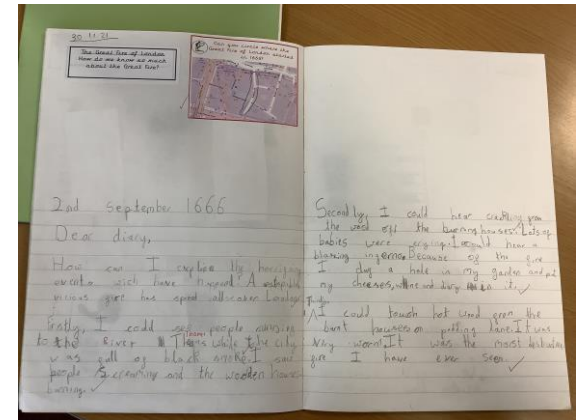 30.11.21
The Great Fire of London
How do we know so much
about the Great Fire?
Can you circle where the
Great Fire of London started
in 1666?
2nd September 1666
Dear diary,
How can I explain the
events wich have
vicious fire has spred all London
Firstly, I could see people running
to the River Thames while the city
was full of black smoke. I saw
people screaming and the wooden houses
burning.
Secondly, I could hear crackling from
the wood off the burning houses. Lots of
babies were crying. I could hear a
blazing inferno. Because of the fire
I dug a hole in my garden and put
my cheeses, wine and diry in it.
I could touch hot wood from the
burnt houses on It was
very worm. It was the most
fire I have ever seen.